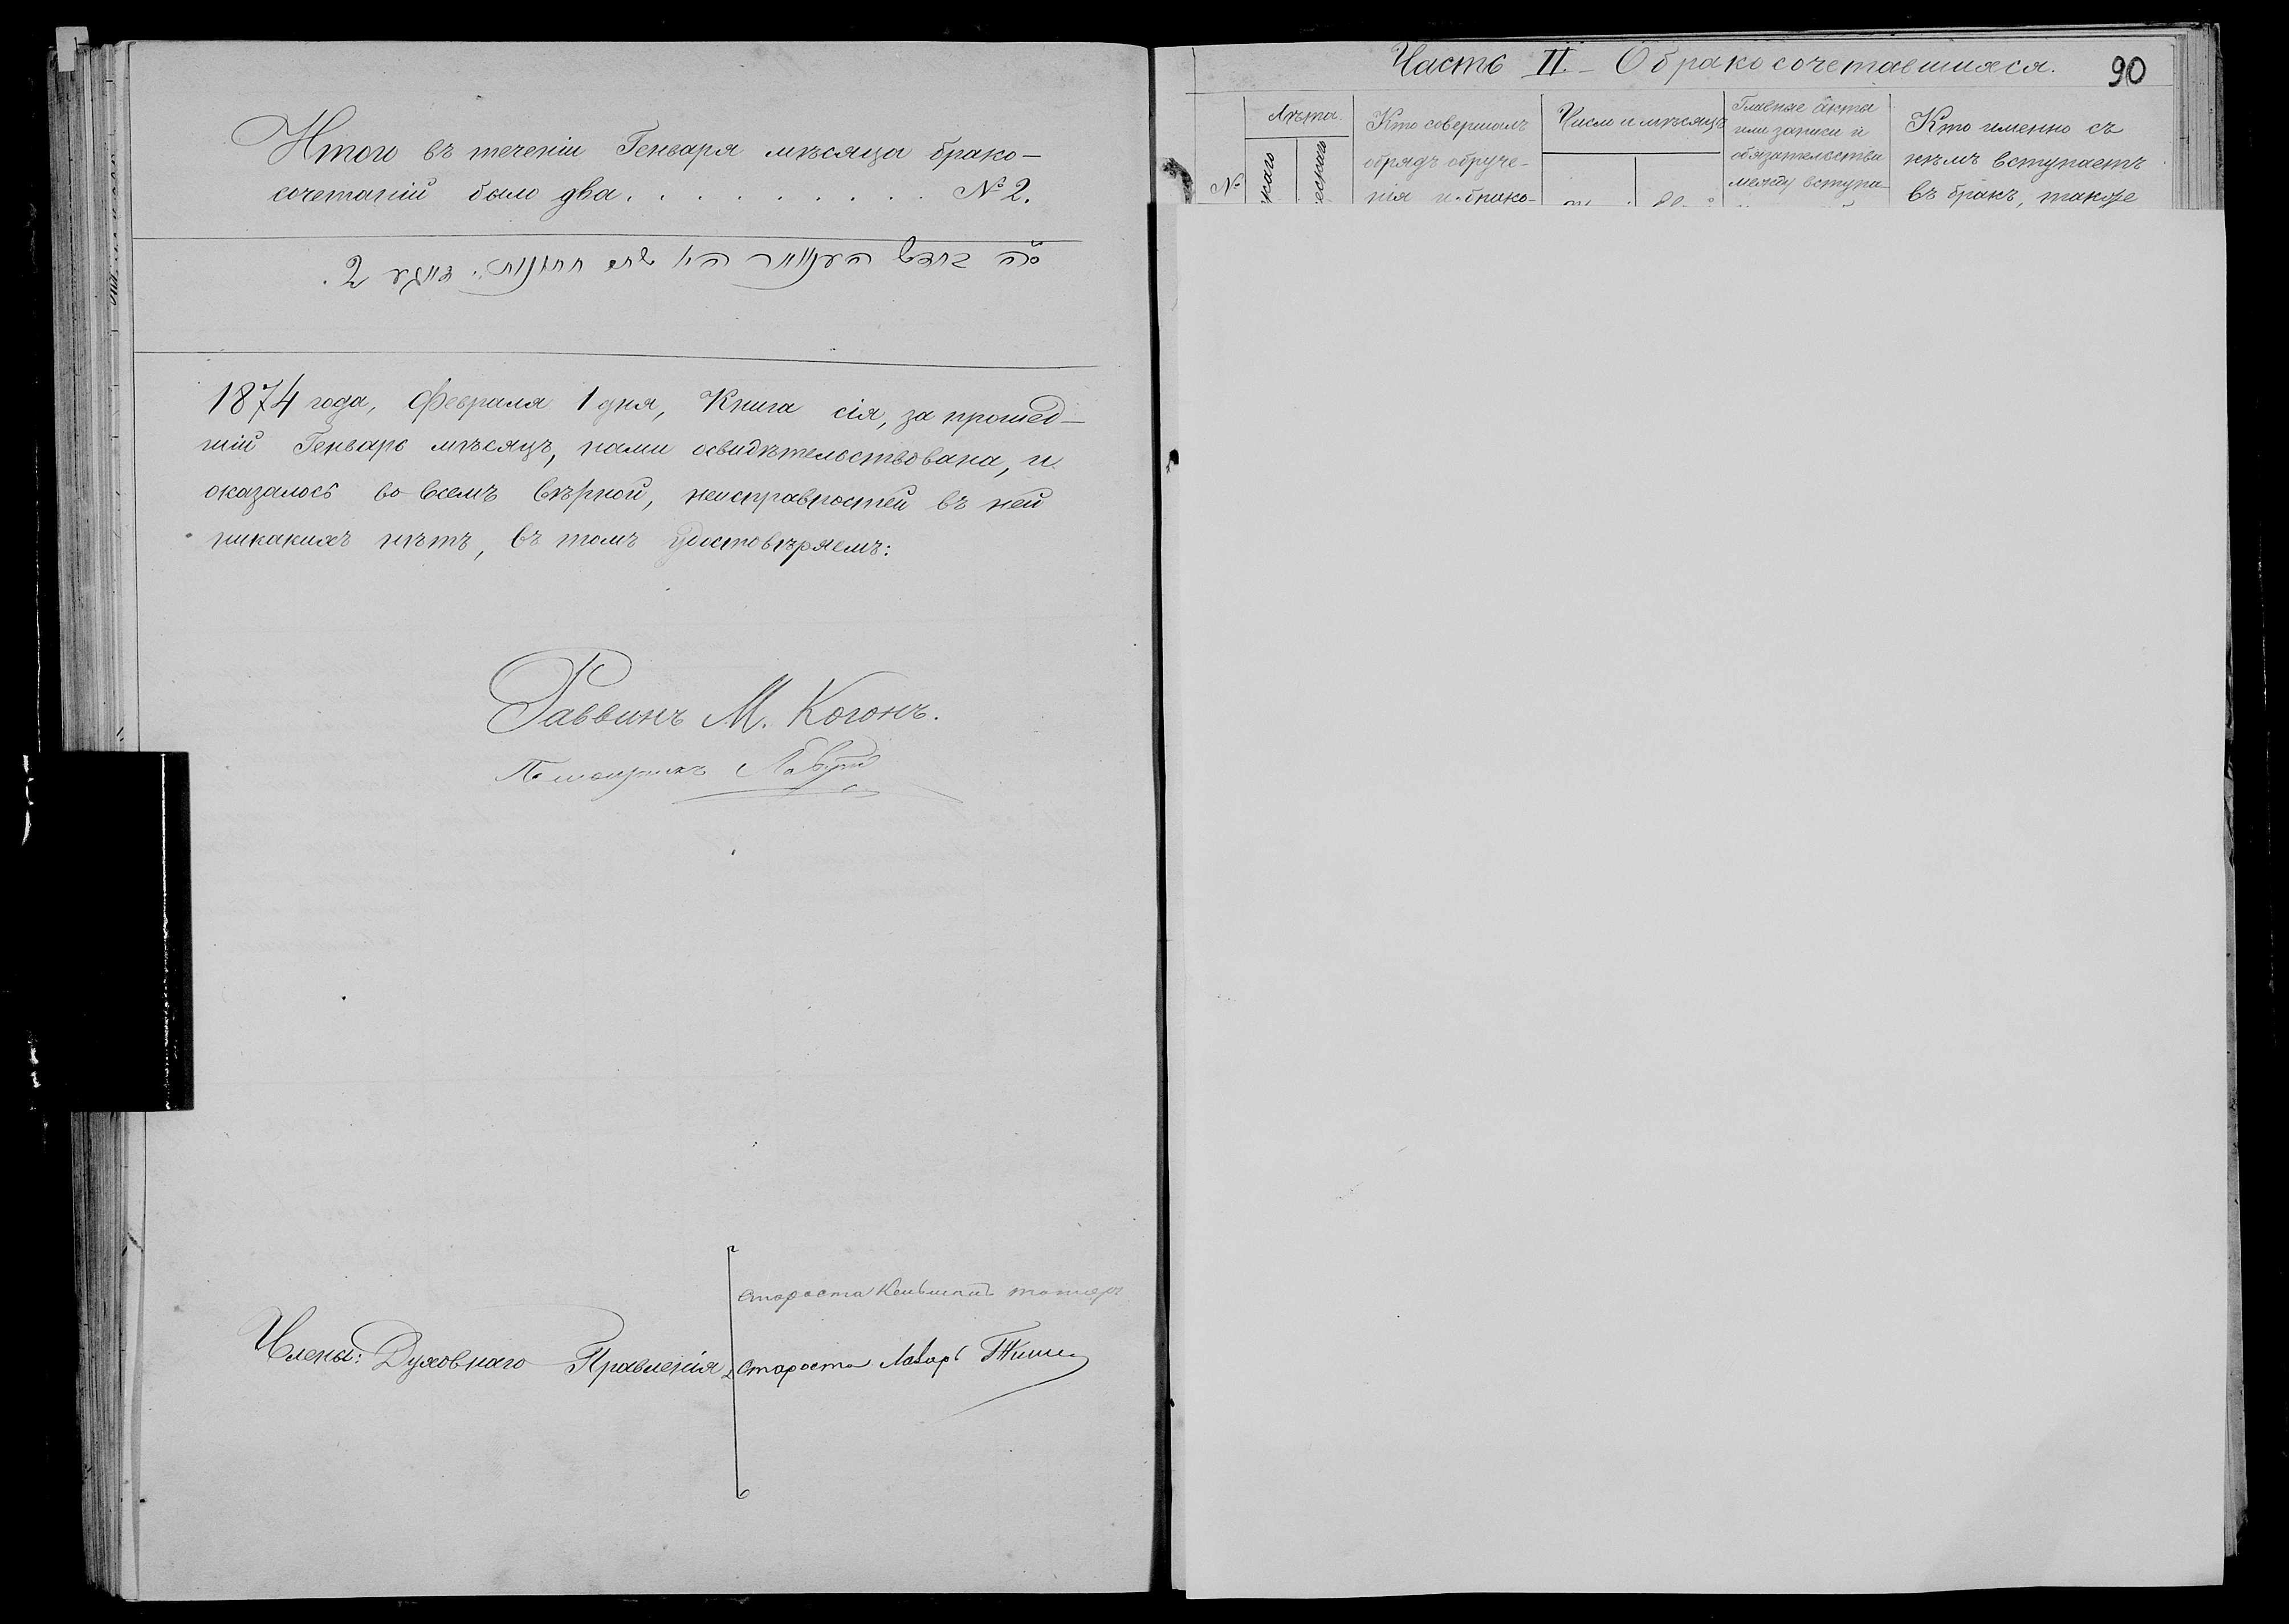 Итого въ теченіи Генваря мѣсяца брако-
сочетаній было два. . . . . . . . . . № 2.
2
1874 года, Февраля 1 дня, Книга сія, за прошед-
шій Генварь мѣсяцъ, нами освидѣтельствована, и
оказалось во всемъ вѣрной, неисправностей въ ней
никакихъ нѣтъ, въ томъ удостовѣряемъ:
Раввинъ М. Когонъ.
Помощникъ
Староста
Члены: Духовнаго Правленія
Староста Лазарь
Часть II. – О бракосочетавшихся.
90
№
Лѣта.
Кто совершалъ
обрядъ обруче-
нія и брако-
Число и мѣсяцъ
Главные акты
или записи и
обязательства
между вступа-
Кто именно съ
кѣмъ вступаетъ
въ бракъ, также